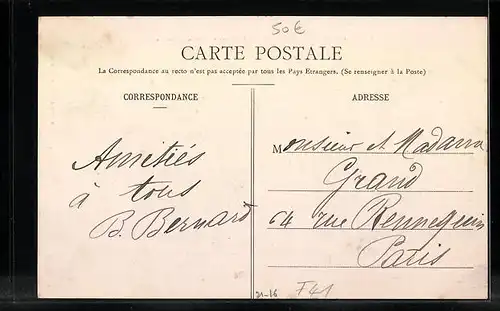 50€
CARTE POSTALE
La Correspondance au recto n'est pas acceptée par tous les Pays Etrangers. (Se renseigner à la Poste)
CORRESPONDANCE
Amitiés
à tous
B. Bernard
ADRESSE
Monsieur et Madame
Grand
64 rue Rennequin
Paris
21-16
F41